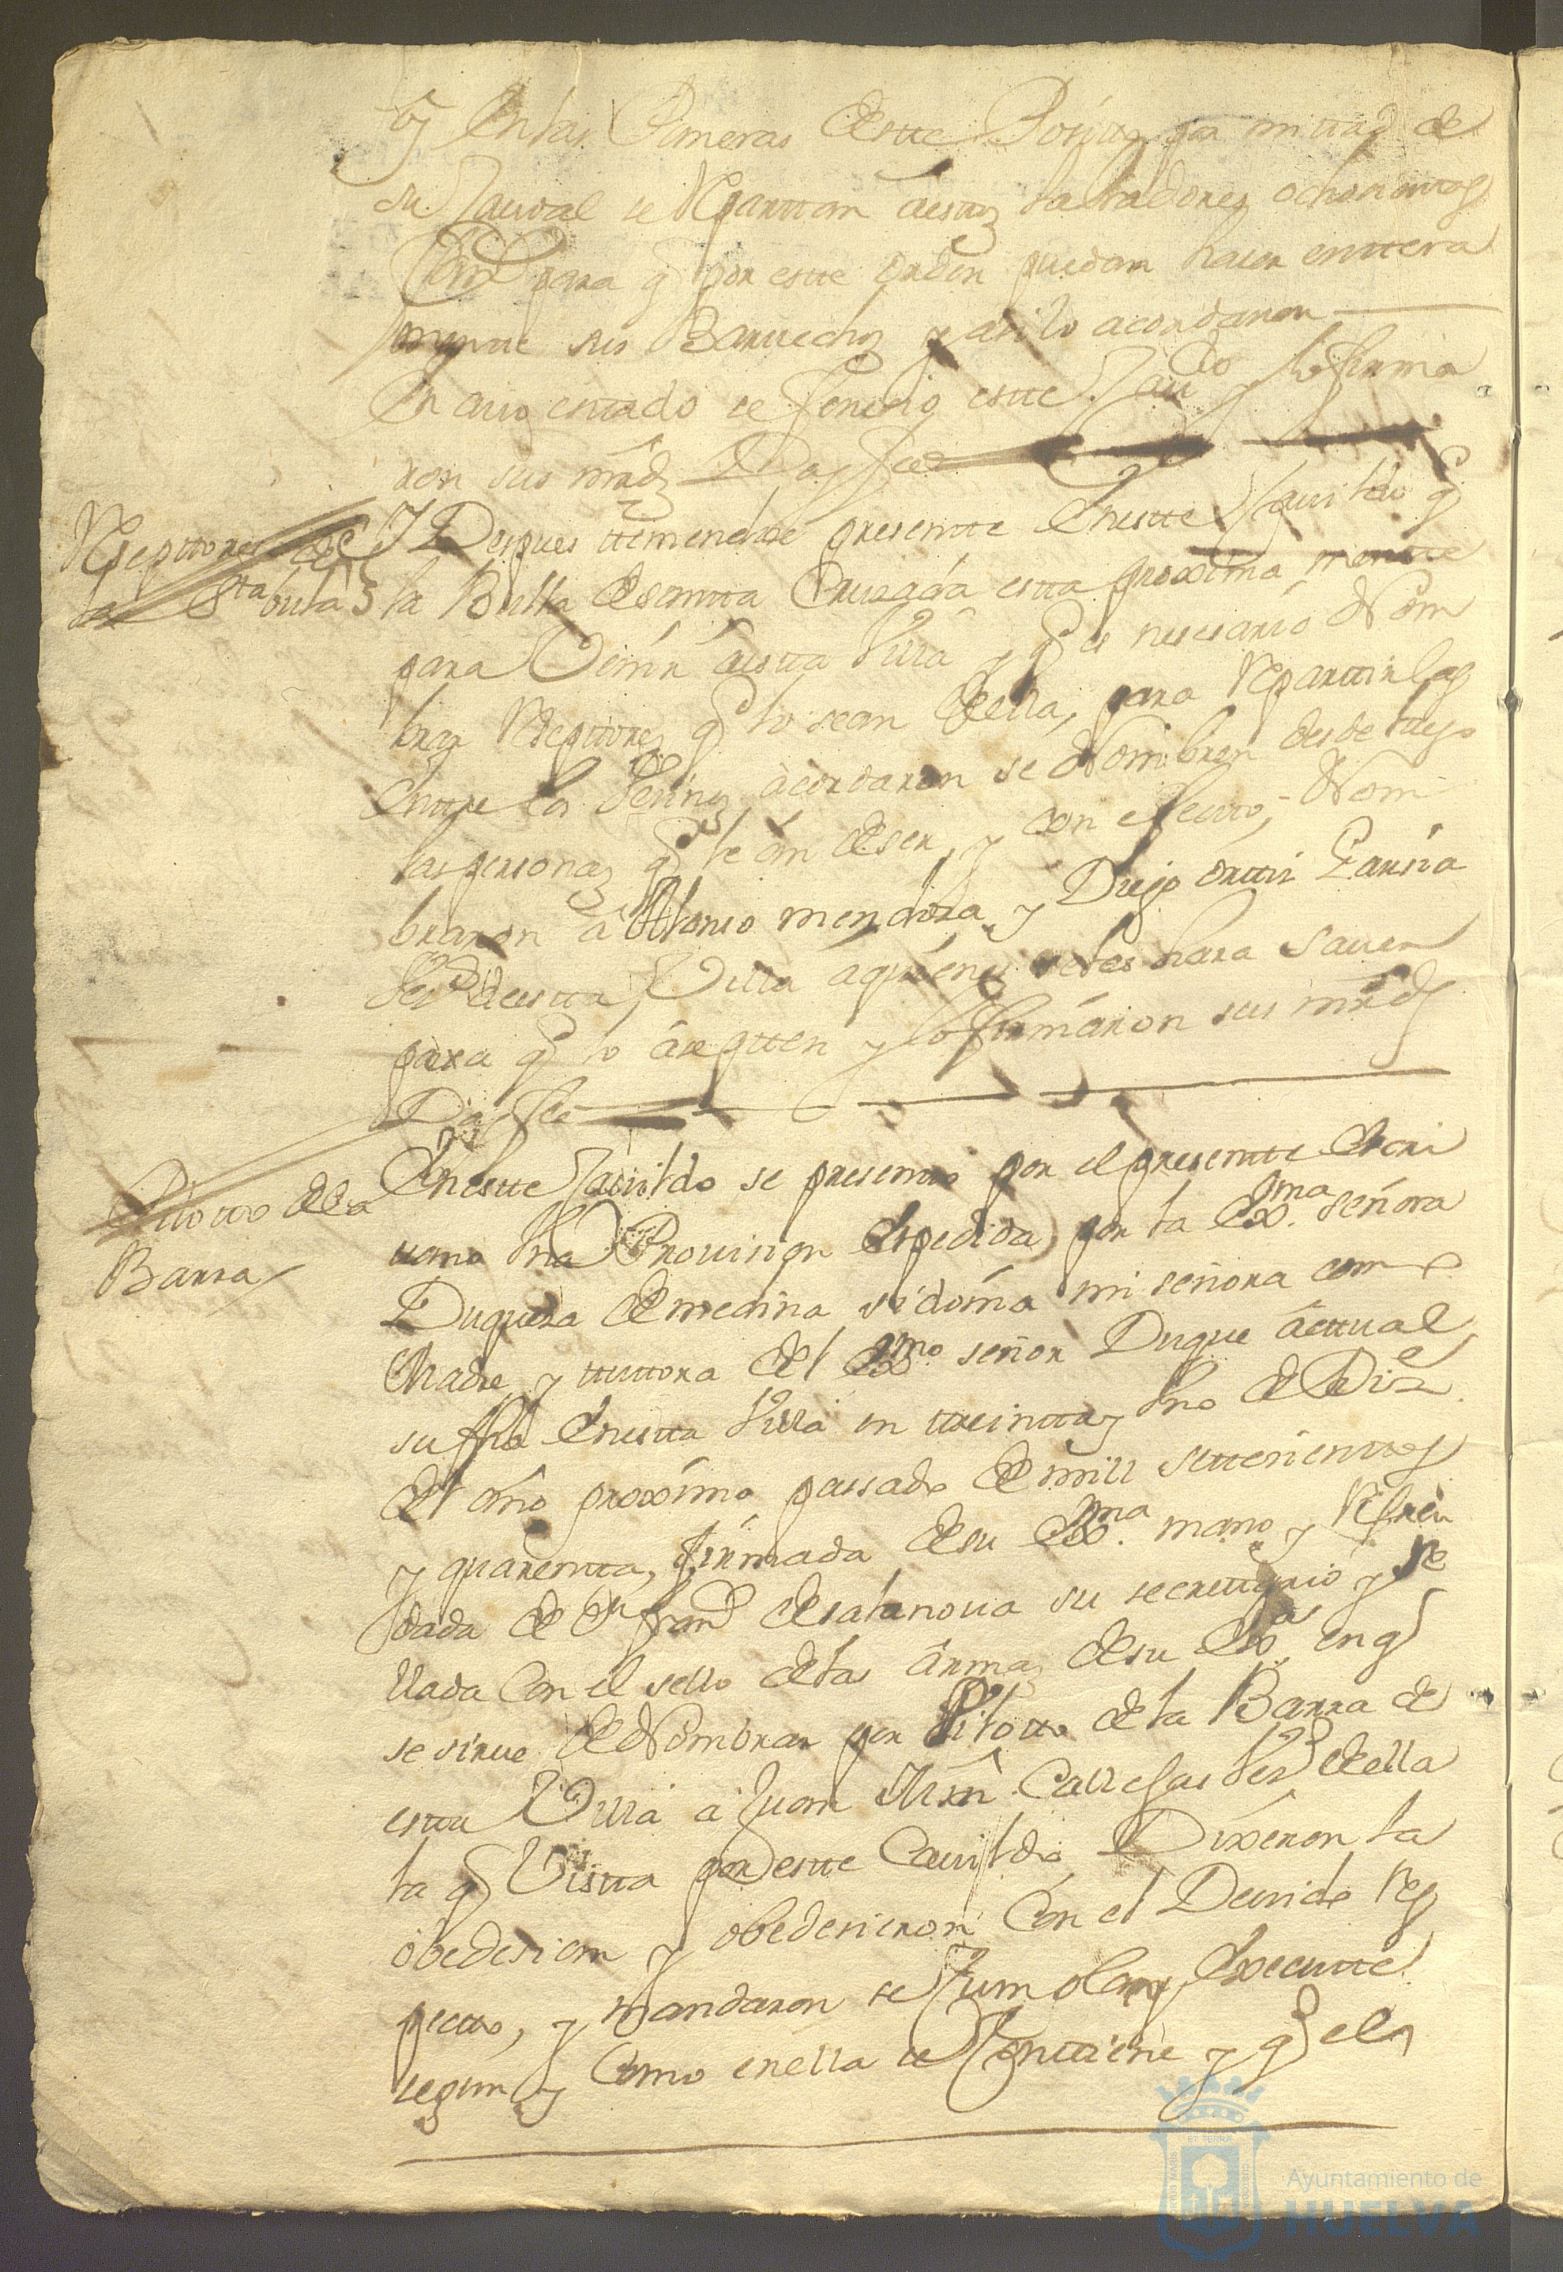 q̃ en las Pameras destte Positto por mittad de
su Caudal se Reparttan a esttos labradores ochosientos
para q̃ por estte orden puedan haser enttera
mentte sus Barvechos y asi lo acordaron
En cuio esttado se fenesio estte Cauᵈᵒ y lo firma
ron sus mrdˢ Doy fee
Reseptores de
la Sᵗᵃ bula
Y Despues ttemendose presentte En estte Cavildo q̃
la Bulla de santta Cruzada estta proxima mentte
para Venir a estta Villa y q̃ es nesesario Nom
brar Reseptores q̃ lo sean de ella, para Reparttirlas
Enttre los Vesinos acordaron se Nombren desde luego
las personas q̃ lo an de ser, y con efectto, Nom
braron a Alonso mendoza y Diego orttis Garsia
veᶻˢ de estta Villa a quienes se les hara saver
para q̃ lo asepten y lo firmaron sus mrdˢ
Doy fee
Pilotto de la
Barra
En estte Cavildo se presentto por el presentte Escri
uano Vna Provision Espedida por la Exᵐᵃ señora
Duquesa de medina sidonia mi señora como
Madre y tuttora del Exᵐᵒ señor Duque acttual
su fha En estta Villa en ttreintta y Vno de Dizᵉ
del año proximo passado de mill settesienttos
y quarentta, firmada de su Exᵐᵃ mano y Refren
dada de Dⁿ franᶜᵒ de salanova su secrettario y se
llada con el sello de las armas de su Exᵃ en q̃
se sirve de Nombrar por Pilotto de la Barra de
estta Villa a Juan Mrn Callejas veᶻ de ella
la q̃ Vistta por estte Cavildo Dixeron la
obedesian y obedesieron Con el Devido Res
pectto, y mandaron se Cumpla y Executte
segun y Como en ella se Conttiene y q̃ el
Ayuntamiento de
HUELVA